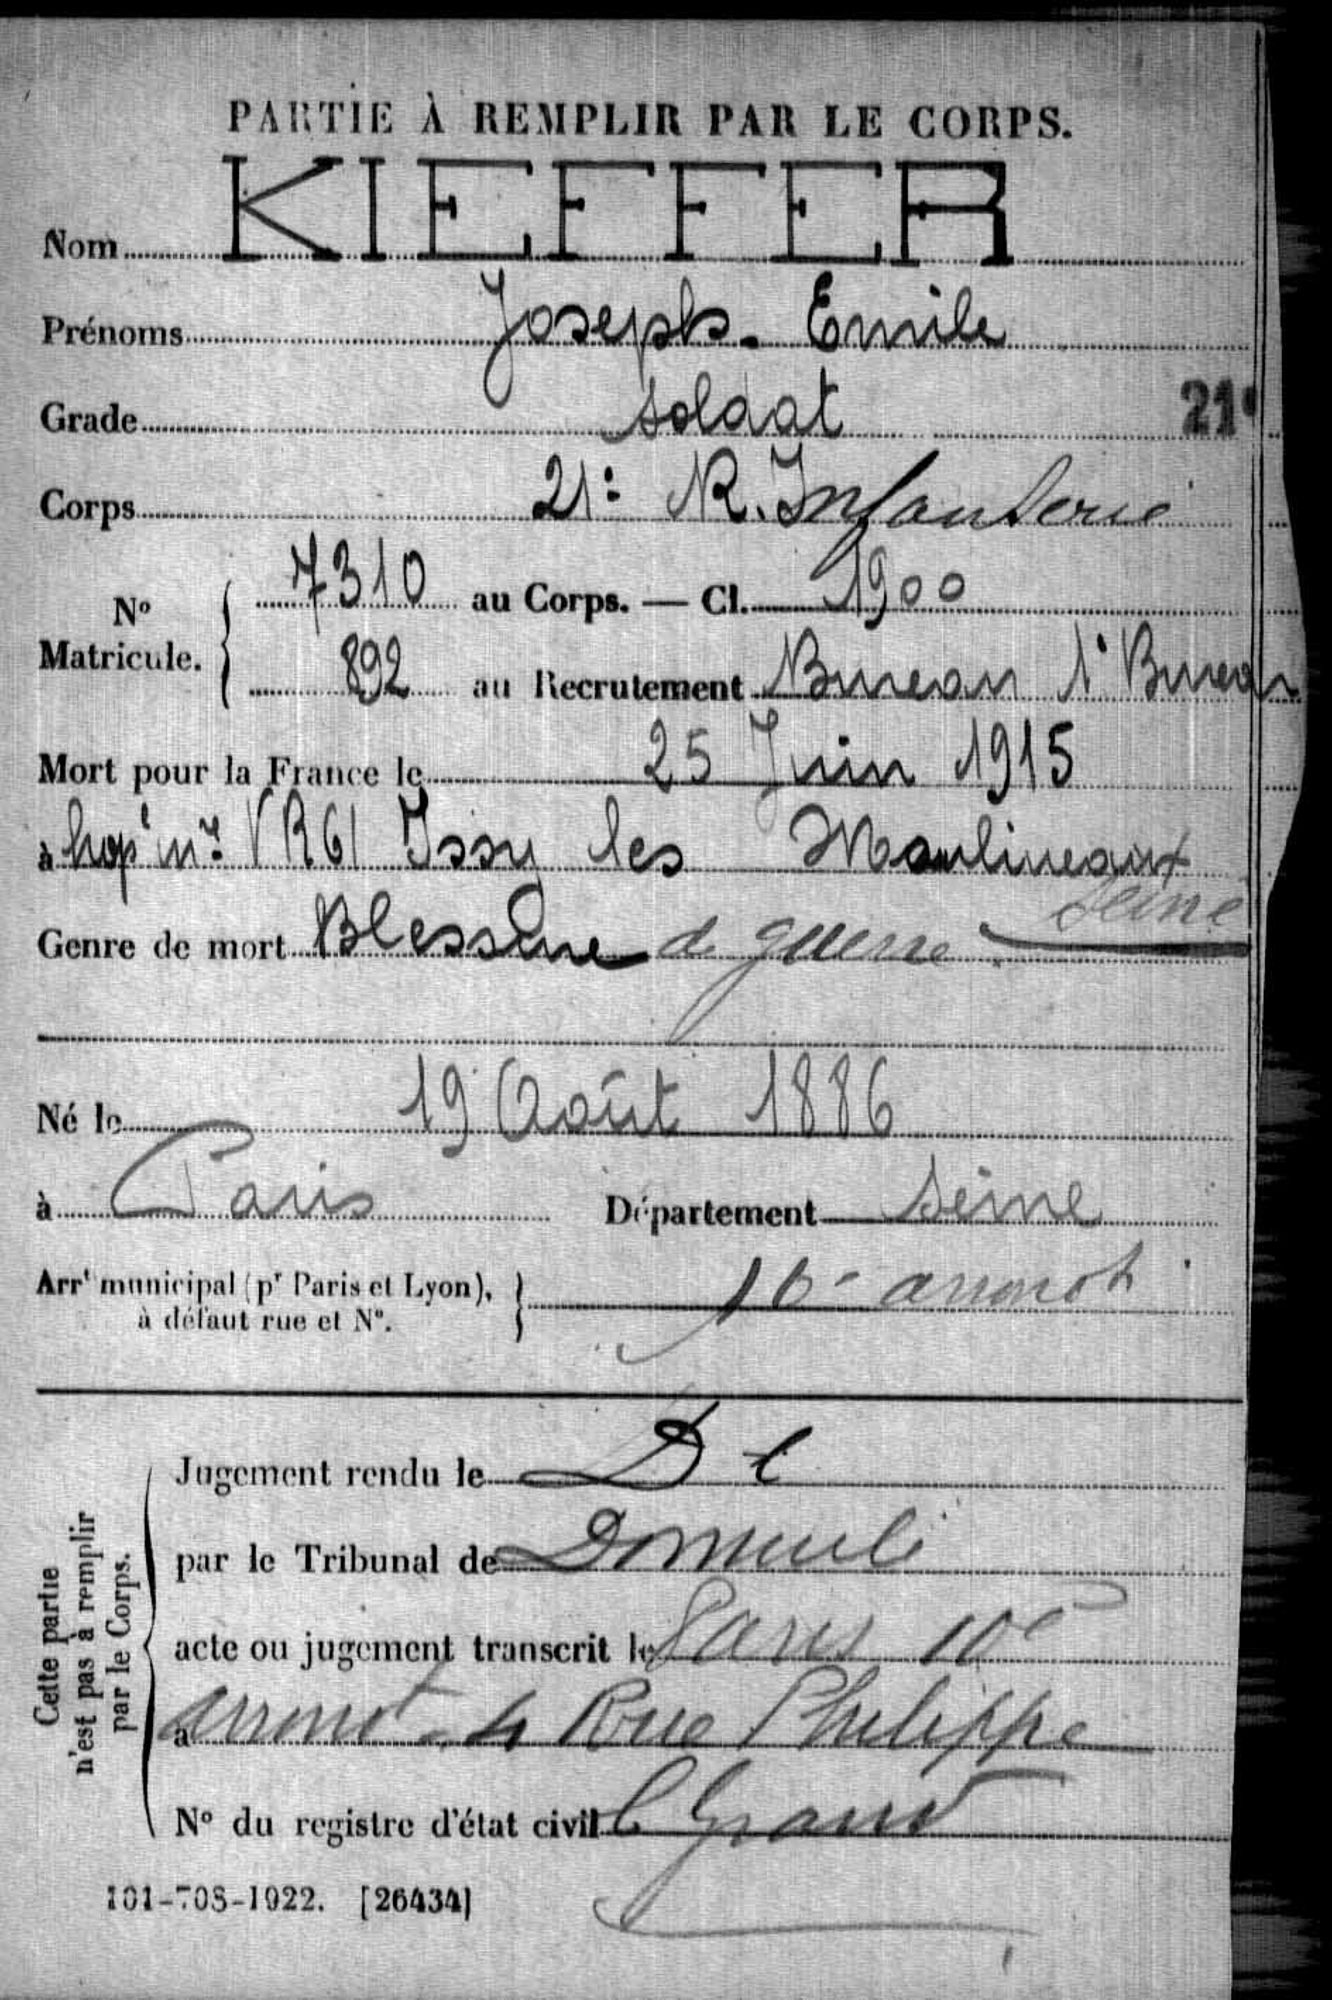 PARTIE À REMPLIR PAR LE CORPS.
Nom KIEFFER
Prénoms Joseph. Emile
Grade soldat
21e
Corps 21e R. Infanterie
N° Matricule. { 7310 au Corps. — Cl. 1900
892 au Recrutement Bureau 1r Bureau
Mort pour la France le 25 Juin 1915
à hopl mre VR61 Issy les Moulineaux
Seine
Genre de mort Blessure de guerre
Né le 19 Août 1886
à Paris Département Seine
Arrt municipal (pr Paris et Lyon), à défaut rue et N°. } arrondt
Cette partie n'est pas à remplir par le Corps.
Jugement rendu le
par le Tribunal de Domicile
acte ou jugement transcrit le Paris 10e
à arrondt 4 Rue Philippe
N° du registre d'état civil le Grand
101-708-1922. [26434]